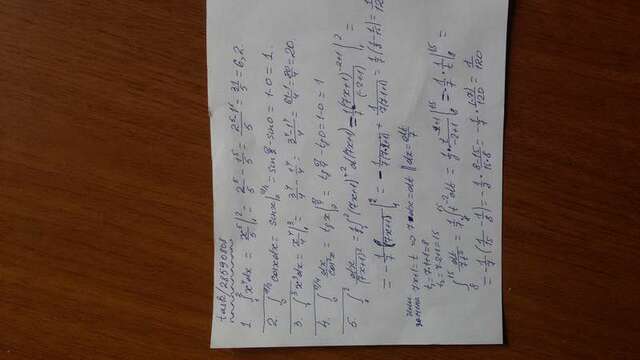 task/28590808
1. ∫₁² x⁴dx = x⁵/5 |₁² = 2⁵/5 - 1⁵/5 = (2⁵-1⁵)/5 = 31/5 = 6,2.
2. ∫₀^(π/2) cosxdx = sinx|₀^(π/2) = sin π/2 - sin0 = 1-0 = 1.
3. ∫₁³ x³dx = x⁴/4 |₁³ = 3⁴/4 - 1⁴/4 = (3⁴-1⁴)/4 = (81-1)/4 = 80/4 = 20
4. ∫₀^(π/4) dx/cos²x = tgx|₀^(π/4) = tg π/4 - tg0 = 1-0 = 1
5. ∫₁² dx/(7x+1)² = 1/7 ∫₁² (7x+1)⁻² d(7x+1) = 1/7 (7x+1)^(-2+1)/(-2+1) |₁² =
= -1/7 · 1/(7x+1) |₁² = -1/(7(7·2+1)) + 1/(7(7·1+1)) = 1/7 (1/8 - 1/15) =
или замена 7x+1=t ⇒ 7dx=dt || dx=dt/7
t₁=7·1+1=8
t₂=7·2+1=15
∫₈¹⁵ dt/7t² = 1/7 ∫₈¹⁵ t⁻²dt = 1/7 · t^(-2+1)/(-2+1) |₈¹⁵ = -1/7 · 1/t |₈¹⁵ =
= -1/7 (1/15 - 1/8) = -1/7 · (8-15)/(15·8) = -1/7 · (-7)/120 = 1/120